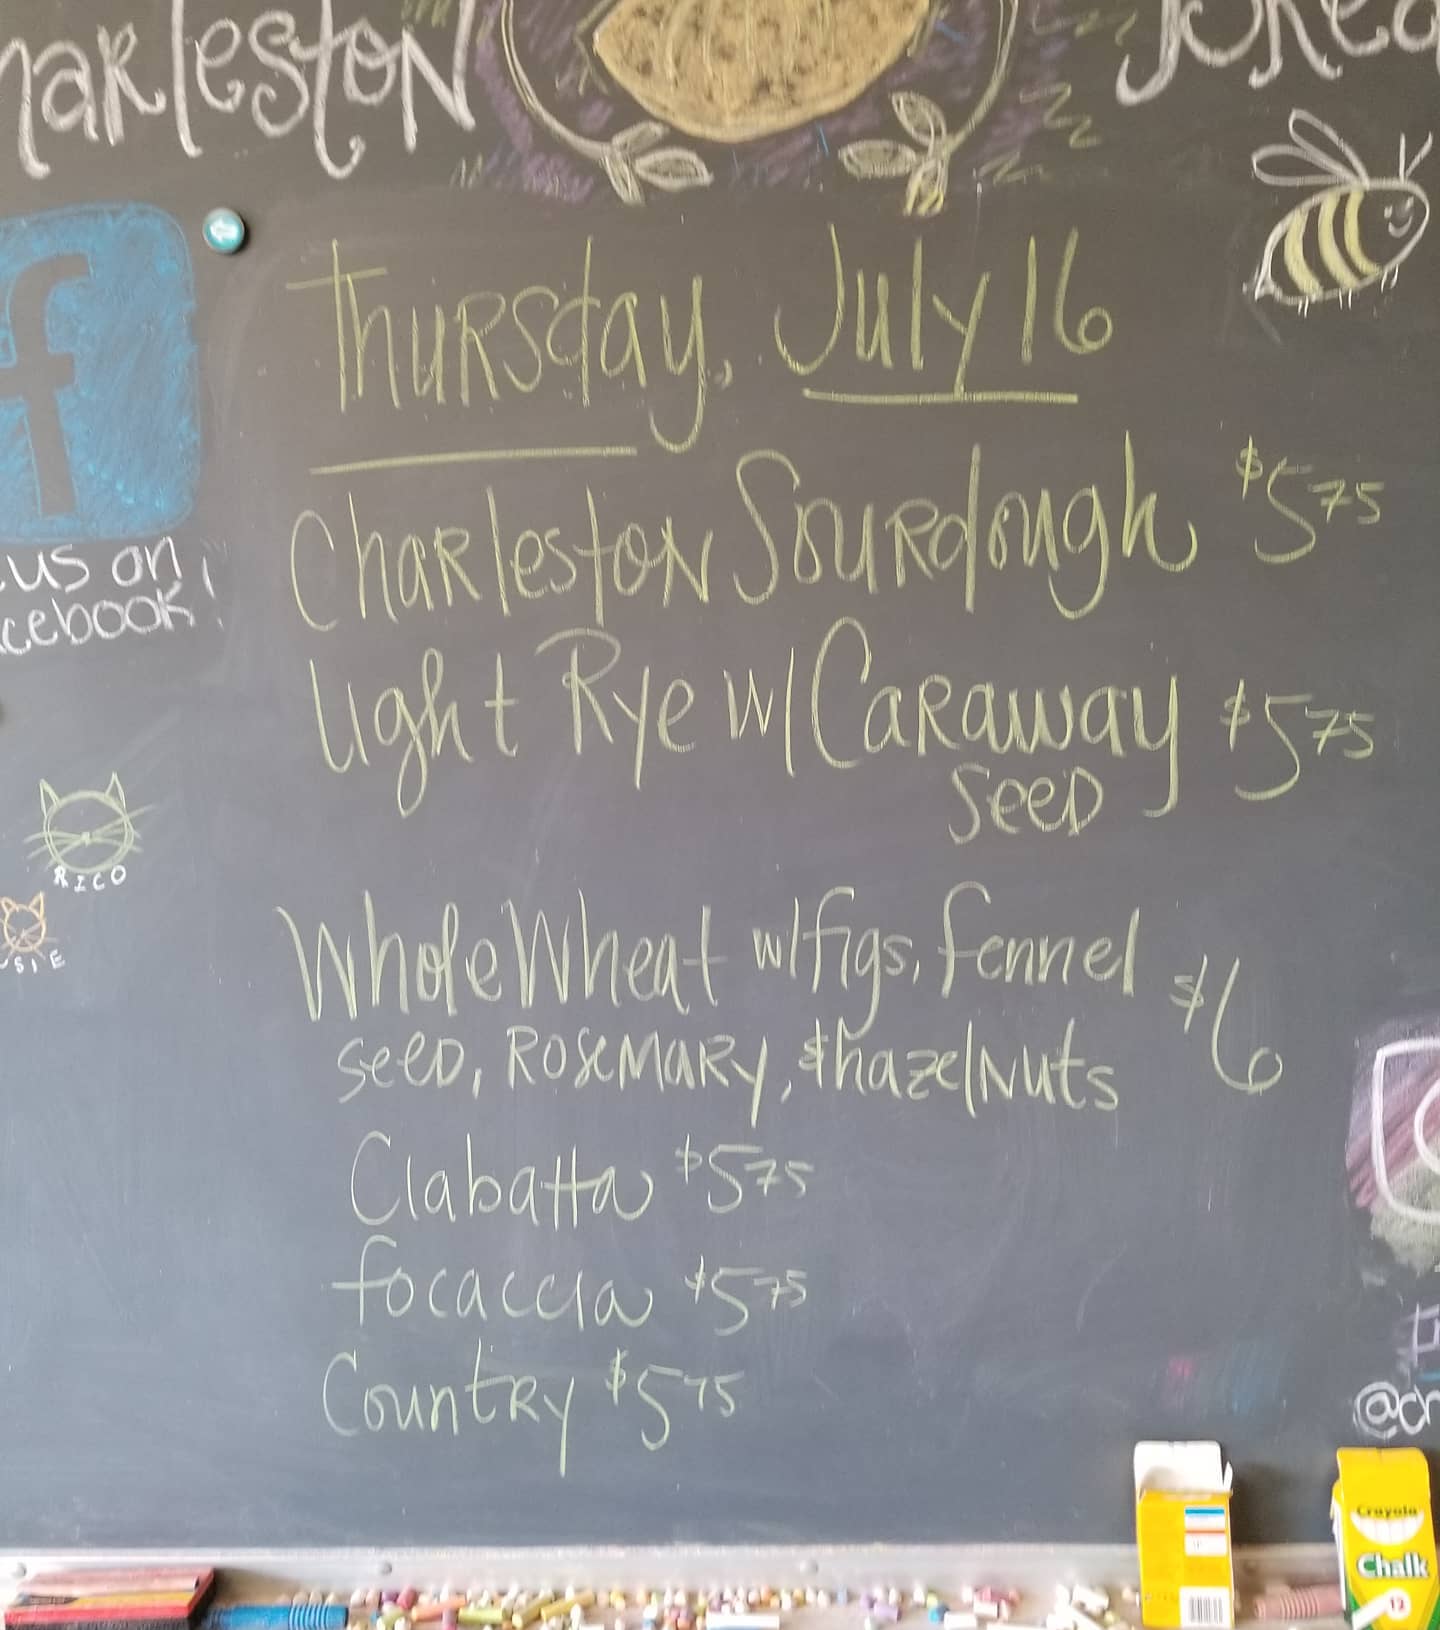 harleston
f
us on
cebook!
Thursday, July 16
Charleston Sourdough $5 75
Light Rye w/ Caraway $5 75
Seed
Whole Wheat w/ figs, fennel $6
seed, Rosemary, & hazelnuts
Ciabatta $5 75
focaccia $5 75
Country $5 75
RICO
SIE
Crayola
Chalk
12